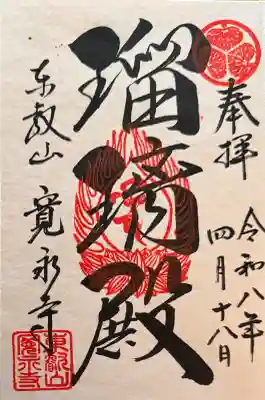 奉拝
令和八年
四月十八日
瑠璃殿
東叡山
寛永寺
東叡山
寛永寺